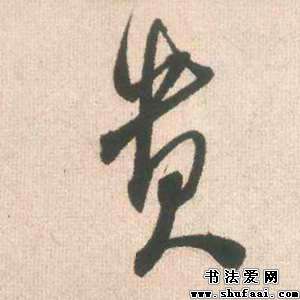 贵
书法爱网
www.shufaai.com